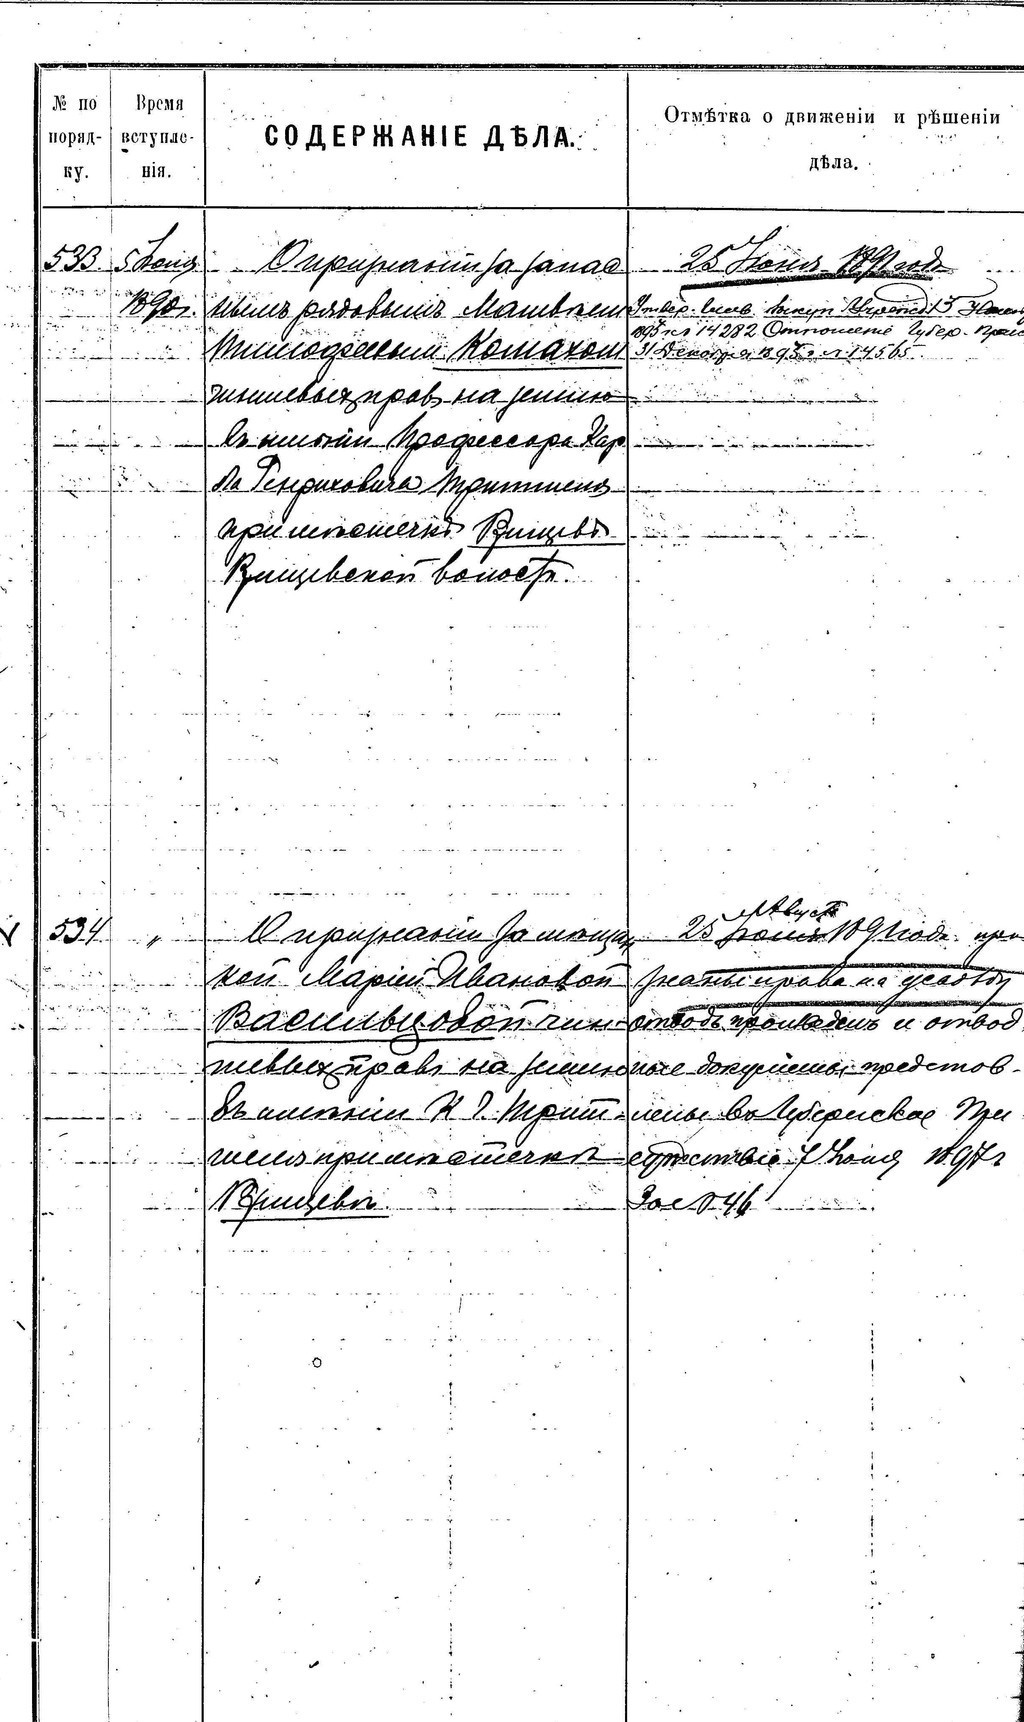 № по поряд-ку.
Время вступле-нія.
СОДЕРЖАНІЕ ДѢЛА.
Отмѣтка о движеніи и рѣшеніи
дѣла.
533
5 Іюня
1890 г.
О признаніи за запас
нымъ рядовымъ Матвѣемъ
Тимофеевым
чиншевыхъ правъ на землю
въ имѣніи Профессора Кар
ла Генриховича Тритшеля
при мѣстечкѣ Рыщевѣ
Рыщевской волости.
25 Іюня 1891 года
Утвер. выкуп 15
1895 г. № 14282 Отношеніе Губер. Прис
31 Декабря 1895 г. № 14565
534
"
О признаніи за мѣщан
кой Маріей Ивановой
Васильцовой чин
шевыхъ правъ на землю
въ имѣніи К Г Трит
шеля при мѣстечкѣ
Рыщевѣ.
Августа
25 Іюня 1891 года при
знаны права на усадьбу
отводъ произведенъ и отвод
ные документы представ-
лены въ Губернское При
сутствіе 7 Іюня 1897 г
За № 46